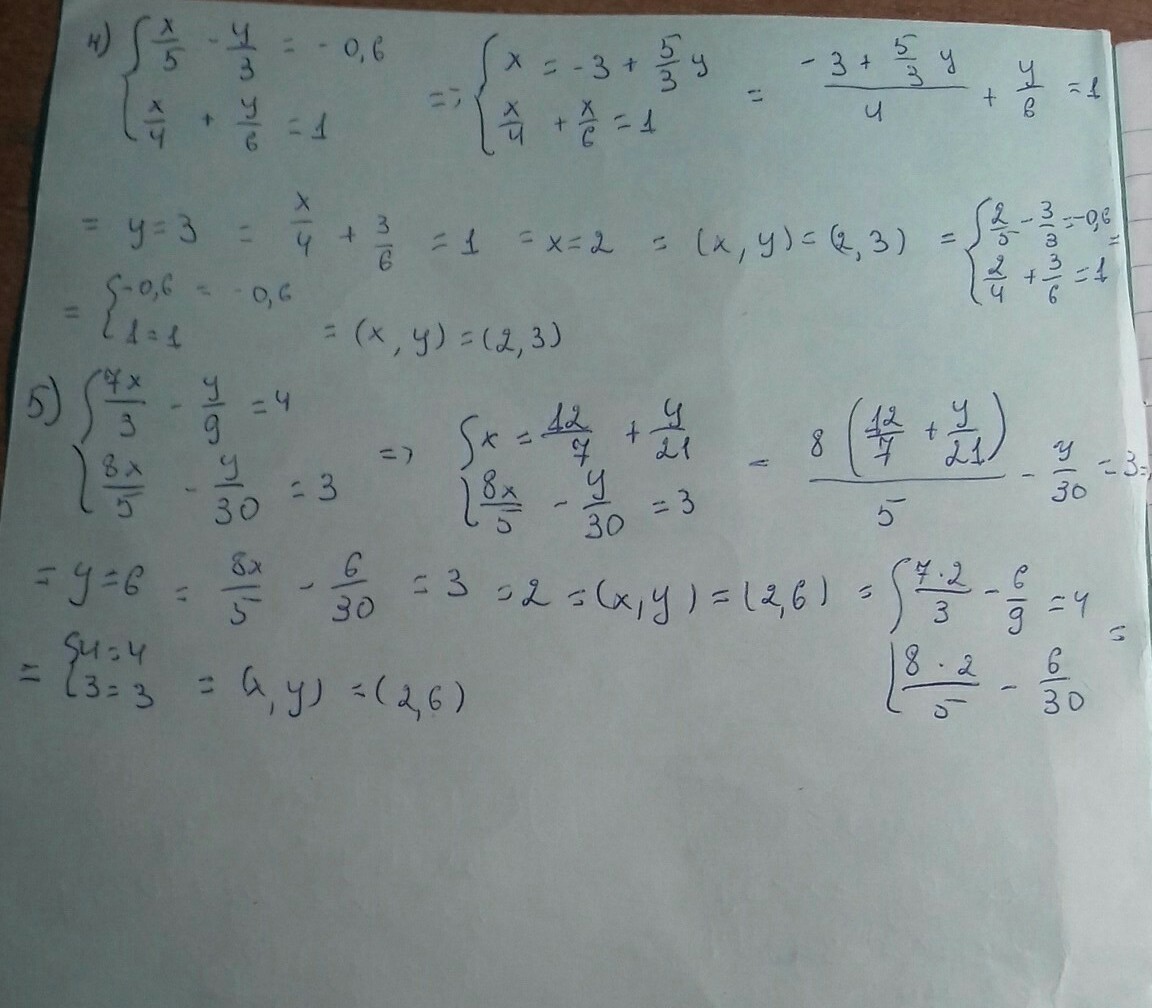 4) { x/5 - y/3 = -0,6 ; x/4 + y/6 = 1 => { x = -3 + 5/3 y ; x/4 + x/6 = 1 = (-3 + 5/3 y)/4 + y/6 = 1
= y = 3 = x/4 + 3/6 = 1 = x = 2 = (x, y) = (2, 3) = { 2/5 - 3/3 = -0,6 ; 2/4 + 3/6 = 1 =
= { -0,6 = -0,6 ; 1 = 1 = (x, y) = (2, 3)
5) { 7x/3 - y/9 = 4 ; 8x/5 - y/30 = 3 => { x = 12/7 + y/21 ; 8x/5 - y/30 = 3 = 8(12/7 + y/21)/5 - y/30 = 3 =
= y = 6 = 8x/5 - 6/30 = 3 = 2 = (x, y) = (2, 6) = { 7·2/3 - 6/9 = 4 ; 8·2/5 - 6/30 =
= { 4 = 4 ; 3 = 3 = (x, y) = (2, 6)